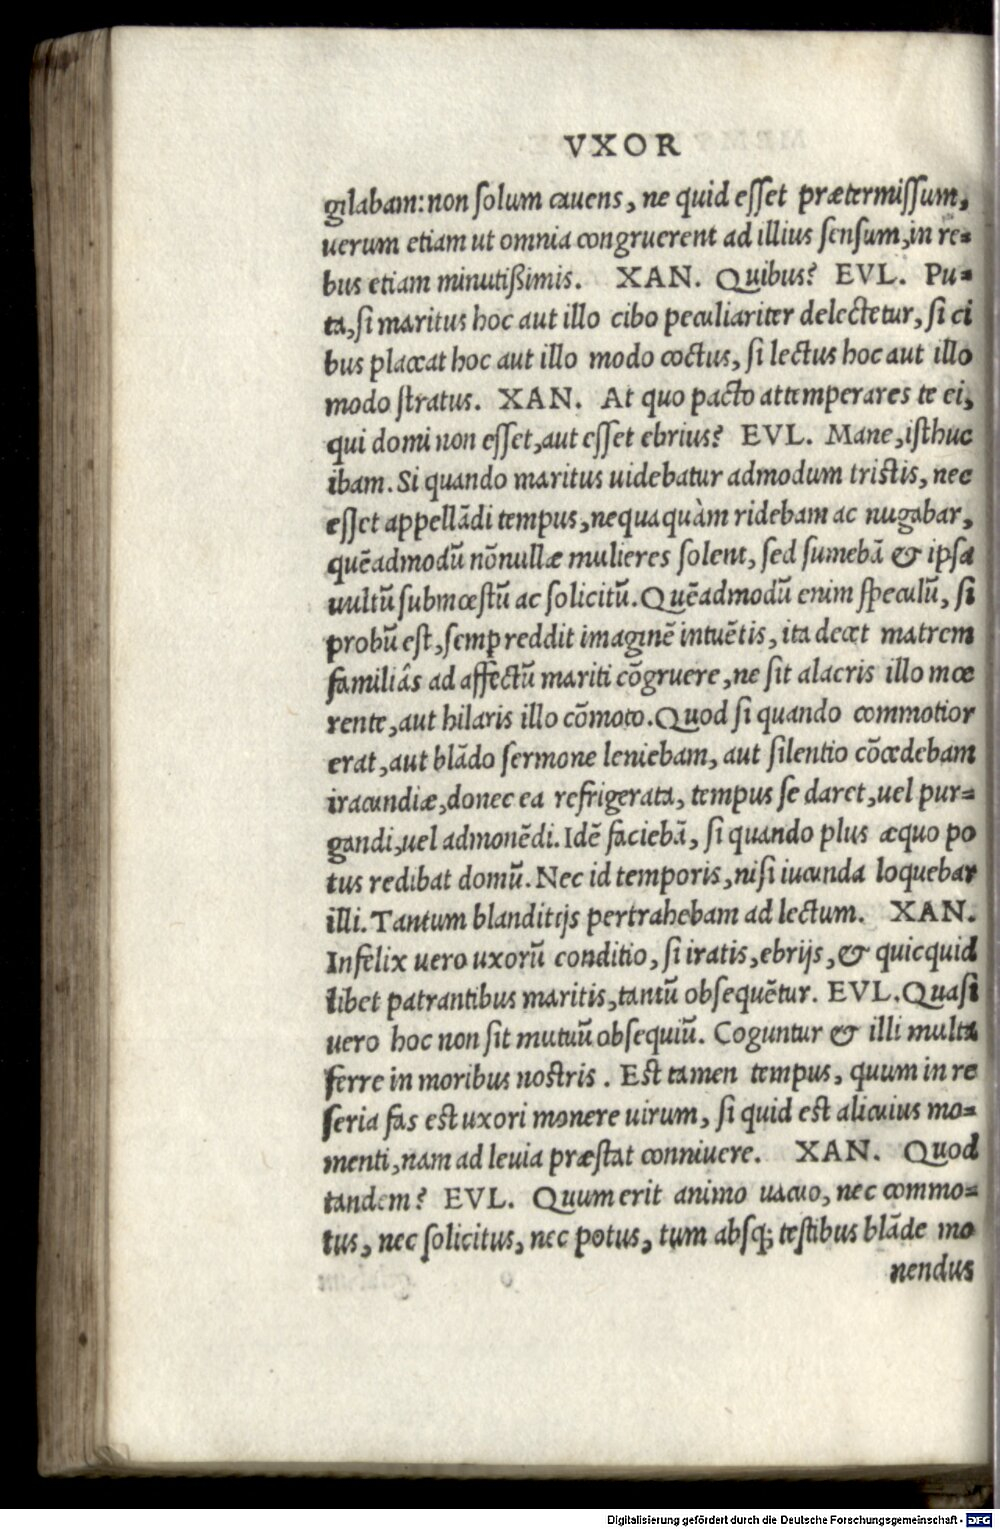 VXOR
gilabam: non solum cauens, ne quid esset prætermissum,
uerum etiam ut omnia congruerent ad illius sensum, in re=
bus etiam minutißimis. XAN. Quibus? EVL. Pu=
ta, si maritus hoc aut illo cibo peculiariter delectetur, si ci
bus placeat hoc aut illo modo coctus, si lectus hoc aut illo
modo stratus. XAN. At quo pacto attemperares te ei,
qui domi non esset, aut esset ebrius? EVL. Mane, isthuc
ibam. Si quando maritus uidebatur admodum tristis, nec
esset appellādi tempus, nequaquàm ridebam ac nugabar,
quēadmodū nōnullæ mulieres solent, sed sumebā & ipsa
uultū submœstū ac solicitū. Quēadmodū enim speculū, si
probū est, semp reddit imaginē intuētis, ita decet matrem
familiâs ad affectū mariti cōgruere, ne sit alacris illo mœ
rente, aut hilaris illo cōmoto. Quod si quando commotior
erat, aut blādo sermone leniebam, aut silentio cōcedebam
iracundiæ, donec ea refrigerata, tempus se daret, uel pur=
gandi, uel admonēdi. Idē faciebā, si quando plus æquo po
tus redibat domū. Nec id temporis, nisi iucunda loquebar
illi. Tantum blanditijs pertrahebam ad lectum. XAN.
Infelix uero uxorū conditio, si iratis, ebrijs, & quicquid
libet patrantibus maritis, tantū obsequētur. EVL. Quasi
uero hoc non sit mutuū obsequiū. Coguntur & illi multa
ferre in moribus nostris. Est tamen tempus, quum in re
seria fas est uxori monere uirum, si quid est alicuius mo=
menti, nam ad leuia præstat conniuere. XAN. Quod
tandem? EVL. Quum erit animo uacuo, nec commo=
tus, nec solicitus, nec potus, tum absq; testibus blāde mo
nendus
Digitalisierung gefördert durch die Deutsche Forschungsgemeinschaft - DFG